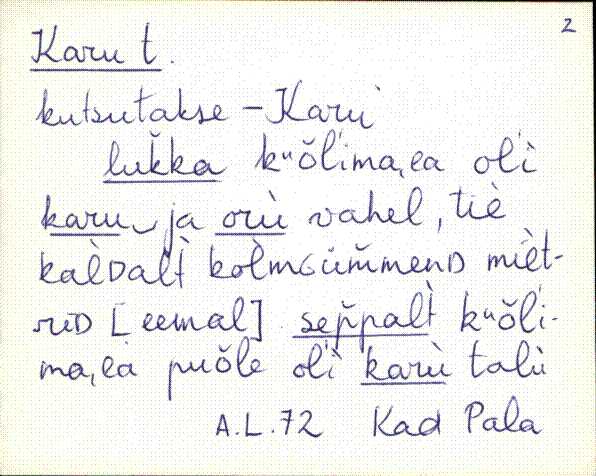 2
Karu t.
kutsutakse – Karu
lukka kuŏl̀ima,ea ol̀i
karu ja orù vahel, tiè
kaèDalt̀ kol̀mGüm̆menD mièt-
riD [eemal] sep̆palt̀ kuŏl̀i-
ma,ea puŏle ol̀i karù talù
A.L.72 Kad Pala